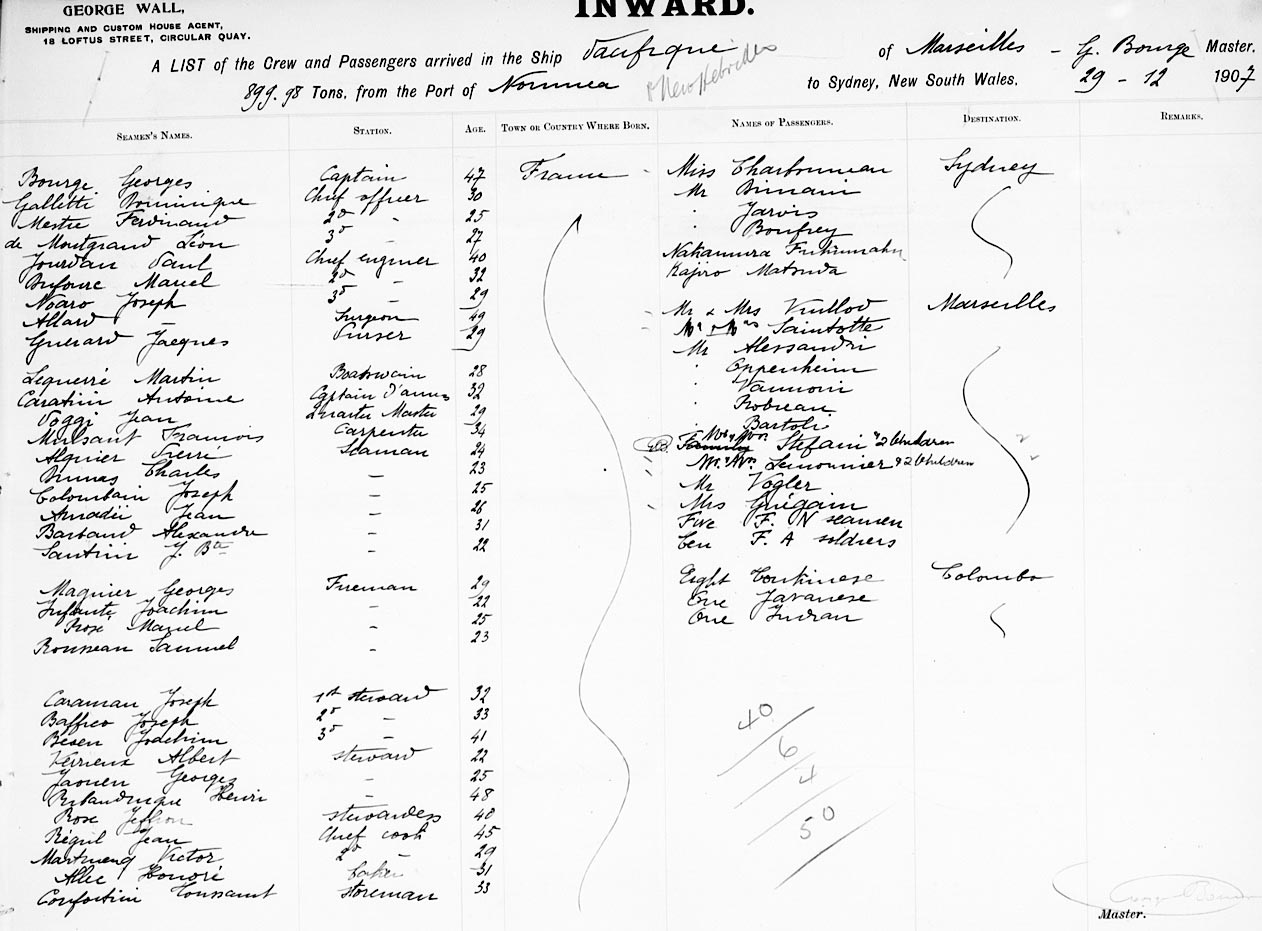 GEORGE WALL,
SHIPPING AND CUSTOM HOUSE AGENT,
18 LOFTUS STREET, CIRCULAR QUAY.
INWARD.
A LIST of the Crew and Passengers arrived in the Ship Pacifique of Marseilles - G. Bourge Master.
899.98 Tons, from the Port of Noumea & New Hebrides to Sydney, New South Wales, 29 - 12 1907
SEAMEN'S NAMES. STATION. AGE. TOWN OR COUNTRY WHERE BORN. NAMES OF PASSENGERS. DESTINATION. REMARKS.
Bourge Georges Captain 47 France
Galletti Dominique Chief officer 30
Mestre Ferdinand 2d " 25
de Montgrand Léon 3d " 27
Jourdan Paul Chief engineer 40
Dufoure Marcel 2d - 32
Noaro Joseph 3d - 29
Allard - Surgeon 49
Guerard Jacques Purser 29
Lequerré Martin Boatswain 28
Caratini Antoine Captain d'armes 32
Poggi Jean Quarter Master 29
Mulsant Francois Carpenter 34
Alquier Pierre Seaman 24
Brunas Charles - 23
Colombain Joseph - 25
Amadéi Jean - 26
Barbaud Alexandre - 31
Santini J. Bte - 22
Magnier Georges Fireman 29
Infante Joachim - 22
Rose Marcel - 25
Rousseau Samuel - 23
Caraman Joseph 1st steward 32
Baffico Joseph 2d - 33
Besen Joachim 3d - 41
Verrieux Albert steward 22
Jaouen Georges - 25
Henri - 48
Rose stewardess 40
Jean Chief cook 45
Victor 2d - 29
Honoré baker 31
Toussaint Storeman 33
Miss Charbonneau Sydney
Mr
" Jarvis
" Boufrey
Nakamura
Kajiro Matsuda
Mr & Mrs Vuillod Marseilles
Mr & Mrs Saintotte
Mr Alessandri
" Oppenheim
" Vaumoin
" Robreau
" Bartoli
GB. Family Mr & Mrs Stefani & 2 Children
Mr & Mrs Lemonnier & 2 Children
Mr Vogler
Mrs Guégain
Five F. N seamen
Ten F. A soldiers
Eight Tonkinese Colombo
One Javanese
One Indian
40
6
4
50
Master.